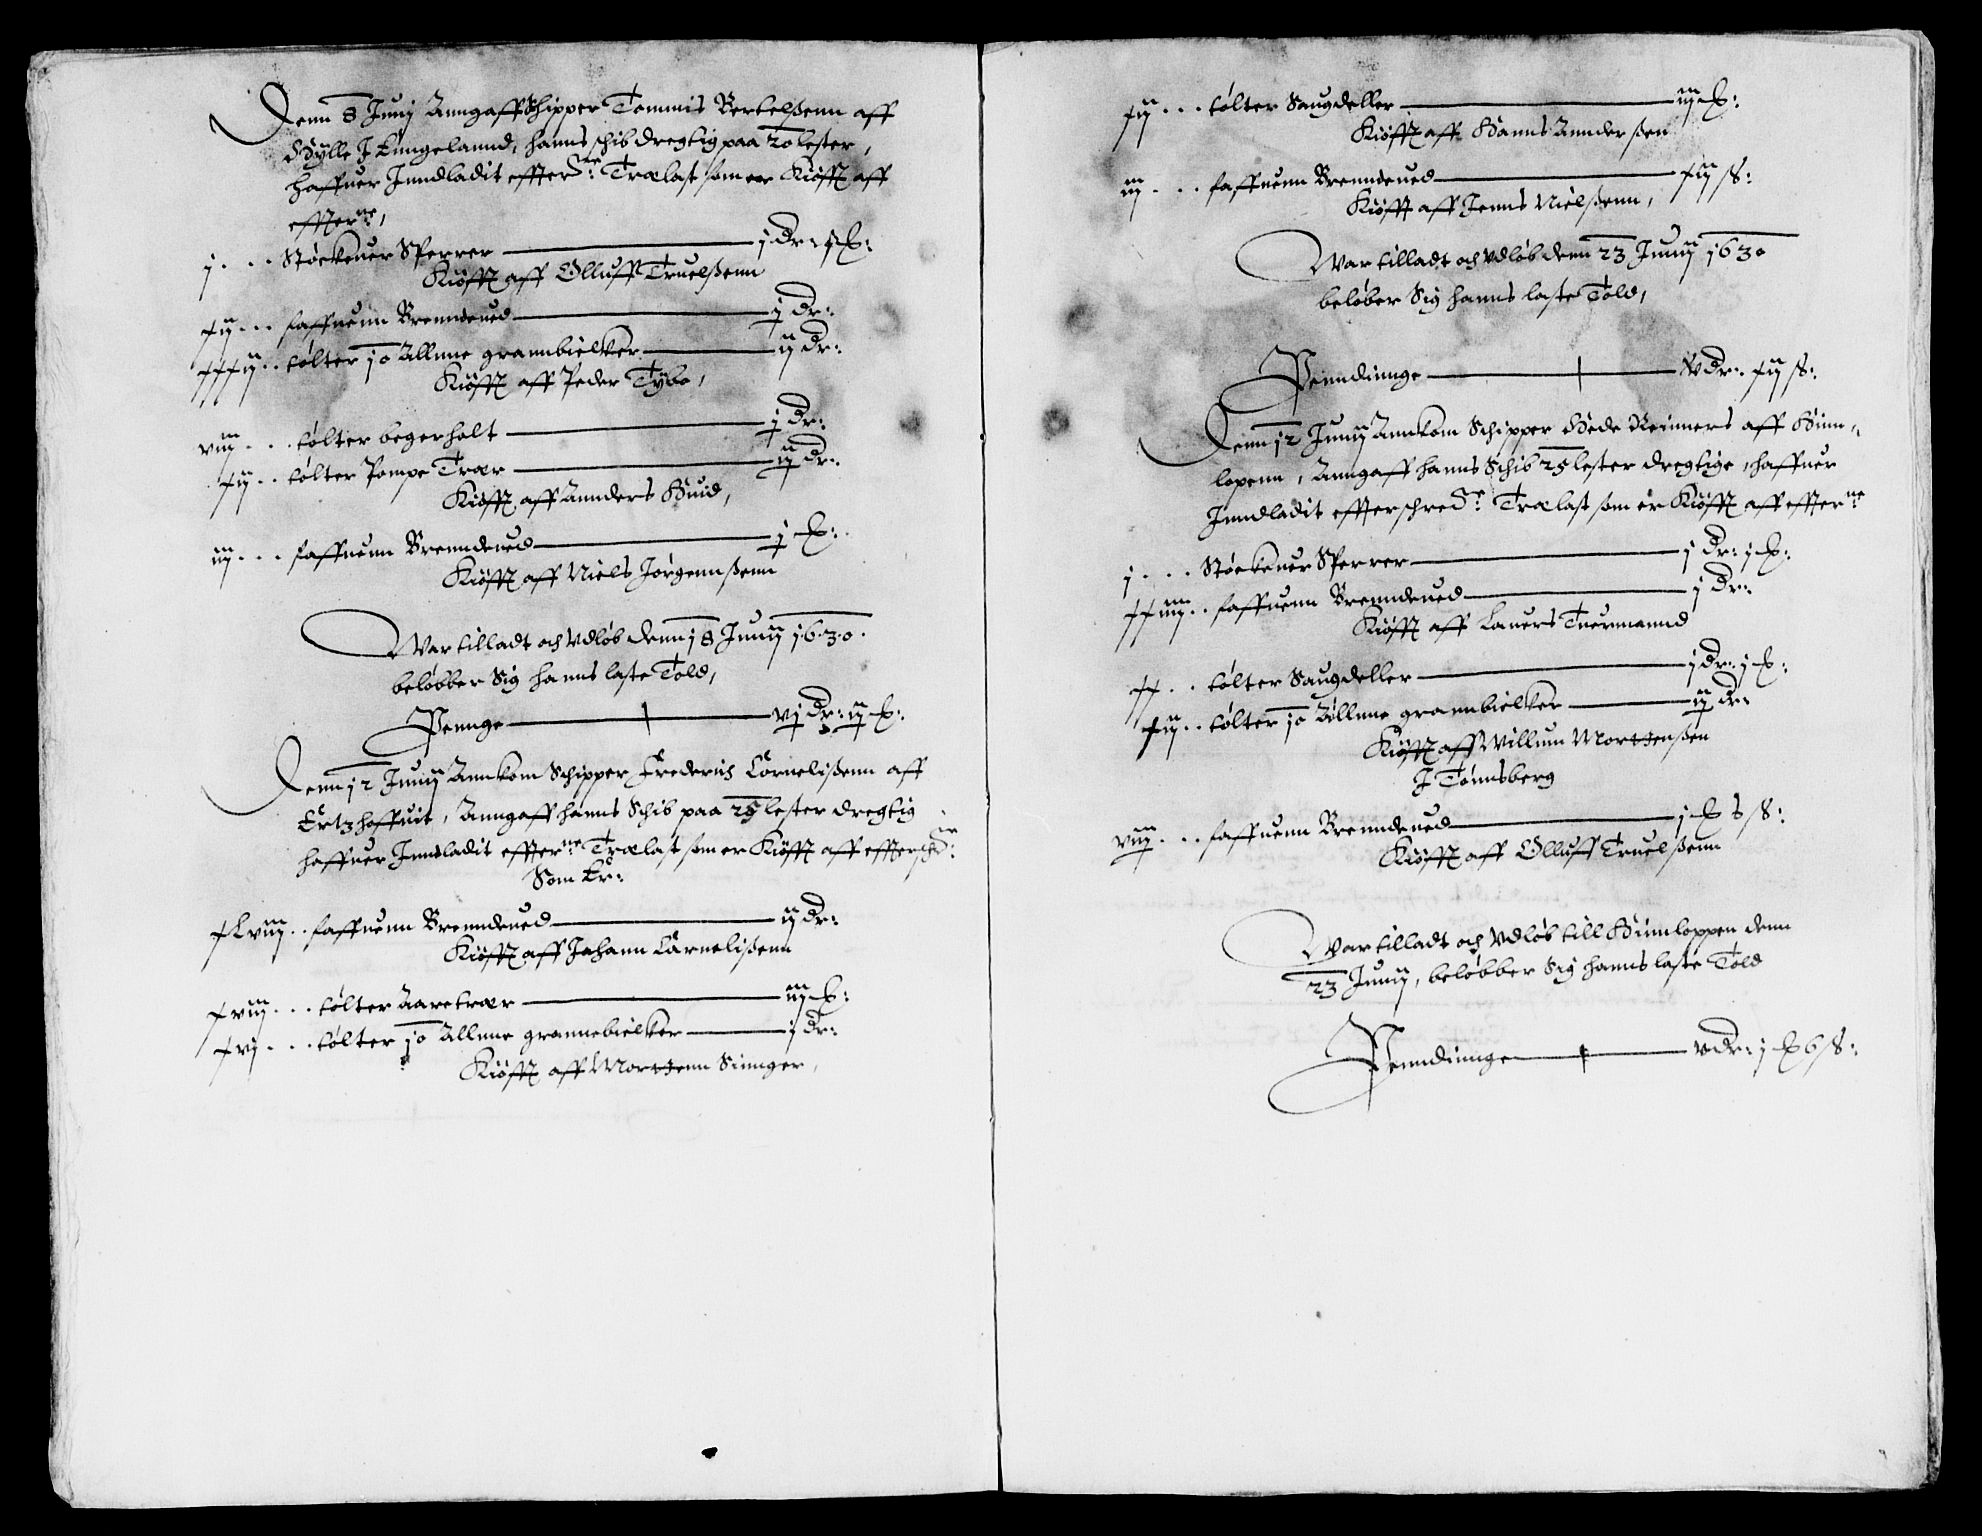 Denn 8 Junij Anngaff Schipper Tommis Bertelßenn aff
Hÿlle J Enngelannd, hanns schib dregtig paa 20 lester,
haffuer Inndladit effterne: Trælast som er Kiøfft aff
effterne,
j . . . Støckeuer Sperrer — j Dr: j ₰:
Kiøfft aff Olluff Truelßenn
xij . . . faffnenn Brenndeued — j Dr:
xxxij . . tølter 10 Allnne grannbielker — ij Dr:
Kiøfft aff Peder Tÿbo,
viij . . . tølter begerholt — j Dr:
xij . . tølter Pompe Træer — ij Dr:
Kiøfft aff Annders Huid,
iij . . . faffnenn Brenndeued — j ₰:
Kiøfft aff Niels Jørgennßenn
War tilladt och Vdløb denn 18 Junij 1630.
beløbber Sig hanns laste Told,
Pennge — vj Dr: ij ₰:
Denn 12 Junij Annkom Schipper Frederich Cornelißenn aff
Ertzhoffuit, Anngaff hanns Schib paa 25 lester dregtig
haffuer Inndladit effterne Trælast som er Kiøfft aff effterschr:
Som Er:
xLviij . . faffnenn Brenndeued — ij Dr:
Kiøfft aff Johann Cornelißenn
xviij . . . tølter Aaretræer — iij ₰:
xvj . . . tølter 10 Allnne grannebielker — j Dr:
Kiøfft aff Morttenn Sinnger,
xij . . . tølter Saugdeller — iij ₰:
Kiøfft aff Hanns Annderßen
iij . . . faffnenn Brenndeued — xij ß:
Kiøfft aff Jenns Nielßenn,
War tilladt och Vdløb denn 23 Junij 1630
beløber Sig hanns laste Told,
Penndinnge — v Dr: xij ß:
Denn 12 Junij Annkom Schipper Hede Reinners aff Hinn,
lopenn, Anngaff hanns Schib 25 lester dregtige, haffuer
Inndladit effterschrene: Trælast som er Kiøfft aff effterne
j . . . Støckeuer Sperrer — j Dr: j ₰:
xxiiij . . faffnenn Brenndeued — j Dr:
Kiøfft aff Lauers Tuermannd
xx . . tølter Saugdeller — j Dr: j ₰:
xij . . tølter 10 Allnne grannbielker — ij Dr:
Kiøfft aff Willum Morttenßen
J Tønnsberg
viij . . . faffnenn Brenndeued — j ₰ 6 ß:
Kiøfft aff Olluff Truelßenn
War tilladt och Vdløb till Hinnloppen denn
23 Junij, beløbber Sig hanns laste Told
Penndinnge — v Dr: j ₰ 6 ß: